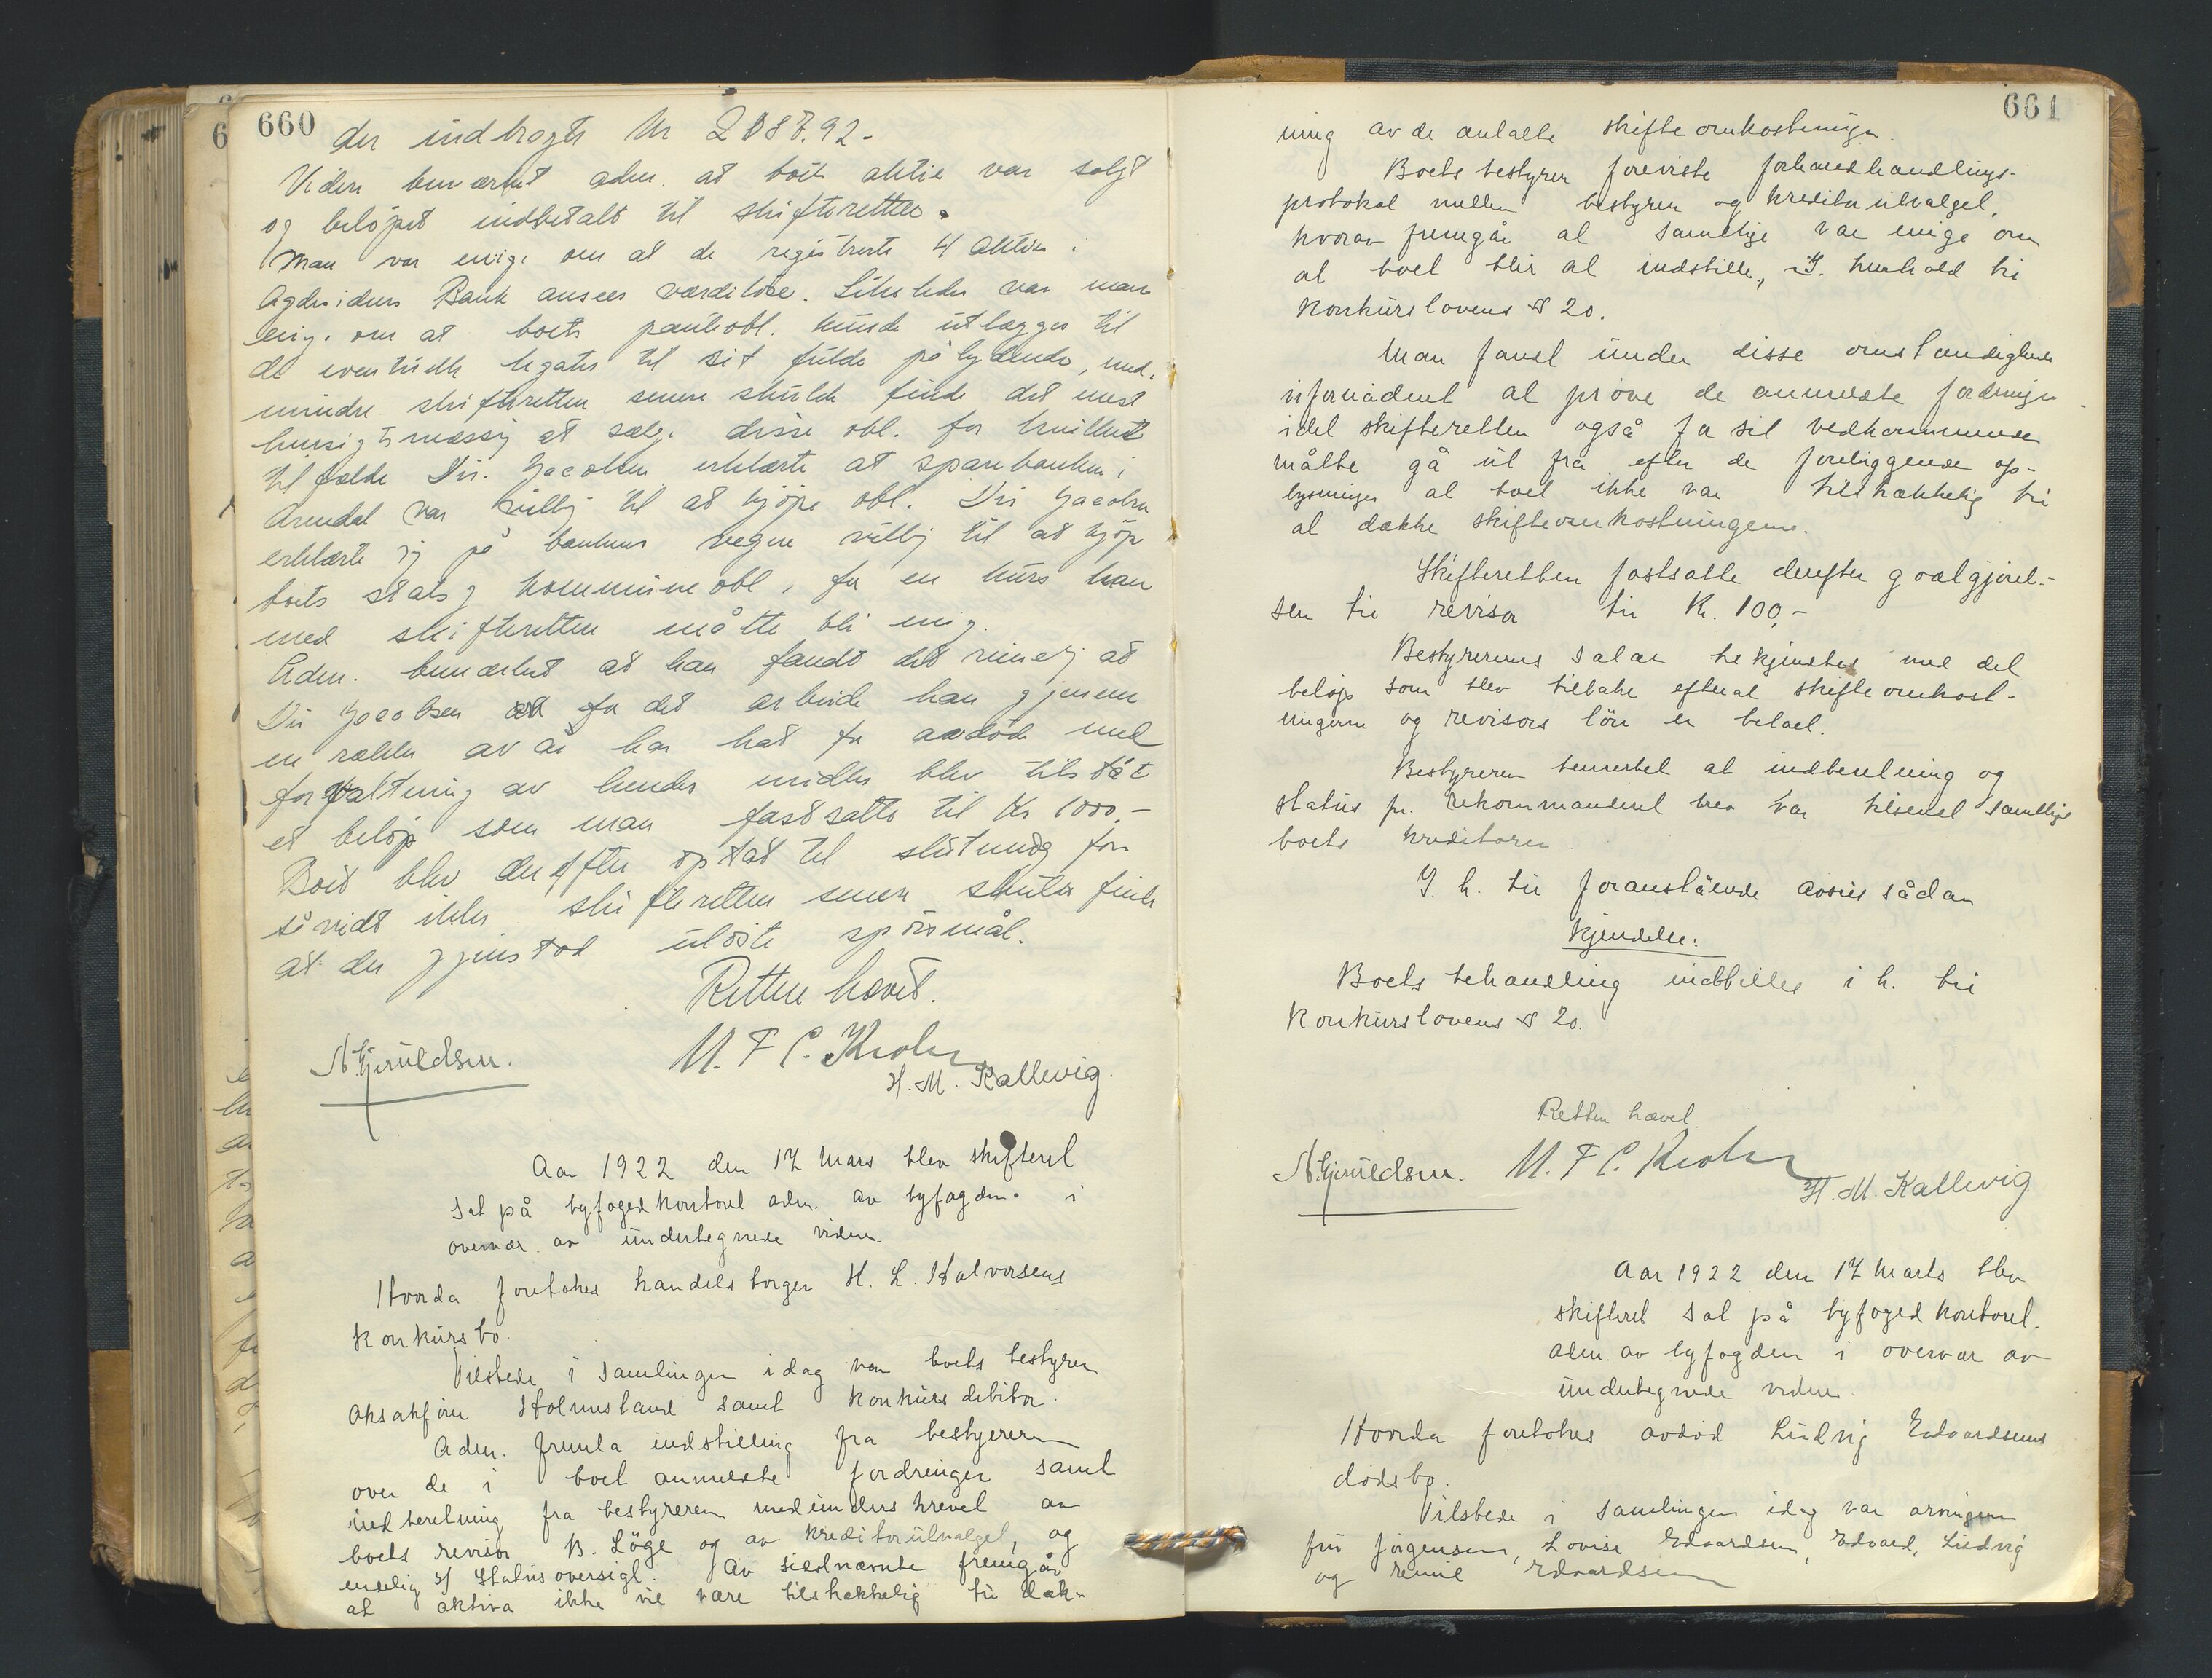 660
der indbragte Kr 2087.92.-
Videre bemærket adm. at boets aktie var solgt
og beløpet indbetalt til skifteretten.
Man var enige om at de registrerte 4 aktier i
Agdesidens Bank ansees værdiløse. Likeledes var man
enig om at boets pantobl. kunde utlægges til
de eventuelle legater til sit fulde pålydende, med-
mindre skifteretten senere skulde finde det mest
hensigtsmæssig at sælge disse obl. for hvilket
tilfælde Dir. Jacobsen erklærte at sparebanken i
Arendal var villig til at kjöpe obl. Dir Jacobsen
erklærte sig på bankens vegne villig til at kjöpe
boets stats og kommuneobl, for en kurs han
med skifteretten måtte bli enig.
Adm. bemærket at han fandt det rimelig at
Dir Jacobsen for det arbeide han gjennem
en række av år har hat for avdöde med
forvaltning av hendes midler blev tilståt
et belöp som man fastsatte til Kr 1000.-
Boet blev derefter optat til slutning for
såvidt ikke skifteretten senere skulde finde
at der gjenstod ulöste spörsmål.
Retten hævet.
N. Gjeruldsen. M. F C. Krohn
H. M. Kallevig.
Aar 1922 den 17 Mars blev skifteret
sat på byfogedkontoret adm. av byfogden i
overvær av undertegnede vidner.
Hvorda foretokes handelsborger H. L. Halvorsens
Konkursbo.
Tilstede i samlingen idag var boets bestyrer
oksakförer Holmesland samt konkursdebitor.
Adm. fremla indstilling fra bestyreren
over de i boet anmeldte fordringer samt
indberetning fra bestyreren medunderskrevet av
boets revisor B. Löge og av kreditorutvalget, og
endelig statusoversigt. Av sidstnævnte fremgår
at aktiva ikke vil være tilstrækkelig til dæk-
661
ning av de antatte skifteomkostninger.
Boets bestyrer foreviste forhandlings-
protokol mellem bestyrer og kreditorutvalget,
hvorav fremgår at samtlige var enige om
at boet blir at indstille, i henhold til
Konkurslovens § 20.
Man fandt under disse omstændigheter
ufornödent at pröve de anmeldte fordringer
idet skifteretten også for sit vedkommende
måtte gå ut fra efter de foreliggende op-
lysninger at boet ikke var tilstrækkelig til
at dække skifteomkostningerne.
Skifteretten fastsatte derefter godtgjörel-
sen til revisor til Kr. 100,-
Bestyrerens salær bekjendtes med det
belöp som blev tilbake efterat skifteomkost-
ningerne og revisors lön er betalt.
Bestyreren bemerket at indberetning og
status pr. rekommandert brev var tilsendt samtlige
boets kreditorer.
I. h. til foranstående avsies sådan
Kjendelse:
Boets behandling indstilles i h. til
Konkurslovens § 20.
Retten hævet.
N. Gjeruldsen. M. F C. Krohn
H. M. Kallevig
Aar 1922 den 17 Marts blev
skifteret sat på byfogedkontoret.
adm. av byfogden i overvær av
undertegnede vidner.
Hvorda foretokes avdöd Ludvig Edvardsens
dödsbo.
Tilstede i samlingen idag var arvingerne
fru Jörgensen, Lovise Edvardsen, Edvard, Ludvig
og Edvardsen